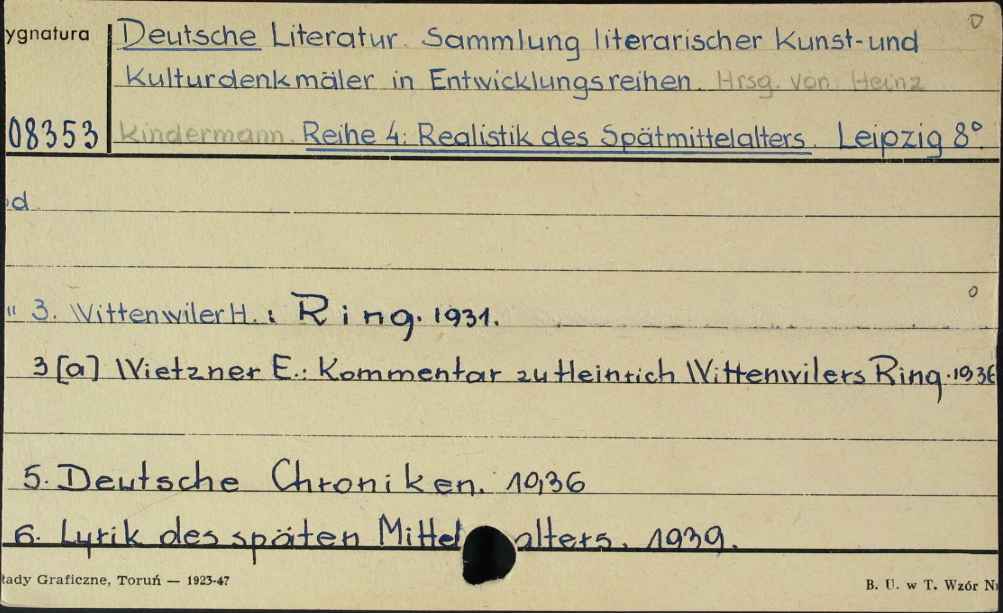 ygnatura
Deutsche Literatur. Sammlung literarischer Kunst-und
Kulturdenkmäler in Entwicklungsreihen. Hrsg. von Heinz
08353 Kindermann. Reihe 4: Realistik des Spätmittelalters. Leipzig 8°.
od
" 3. Wittenwiler H.: Ring. 1931.
3[a] Wietzner E.: Kommentar zu Heinrich Wittenwilers Ring. 1936
5. Deutsche Chroniken. 1936
6. Lyrik des späten Mittelalters. 1939.
łady Graficzne, Toruń — 1923-47
B. U. w T. Wzór N